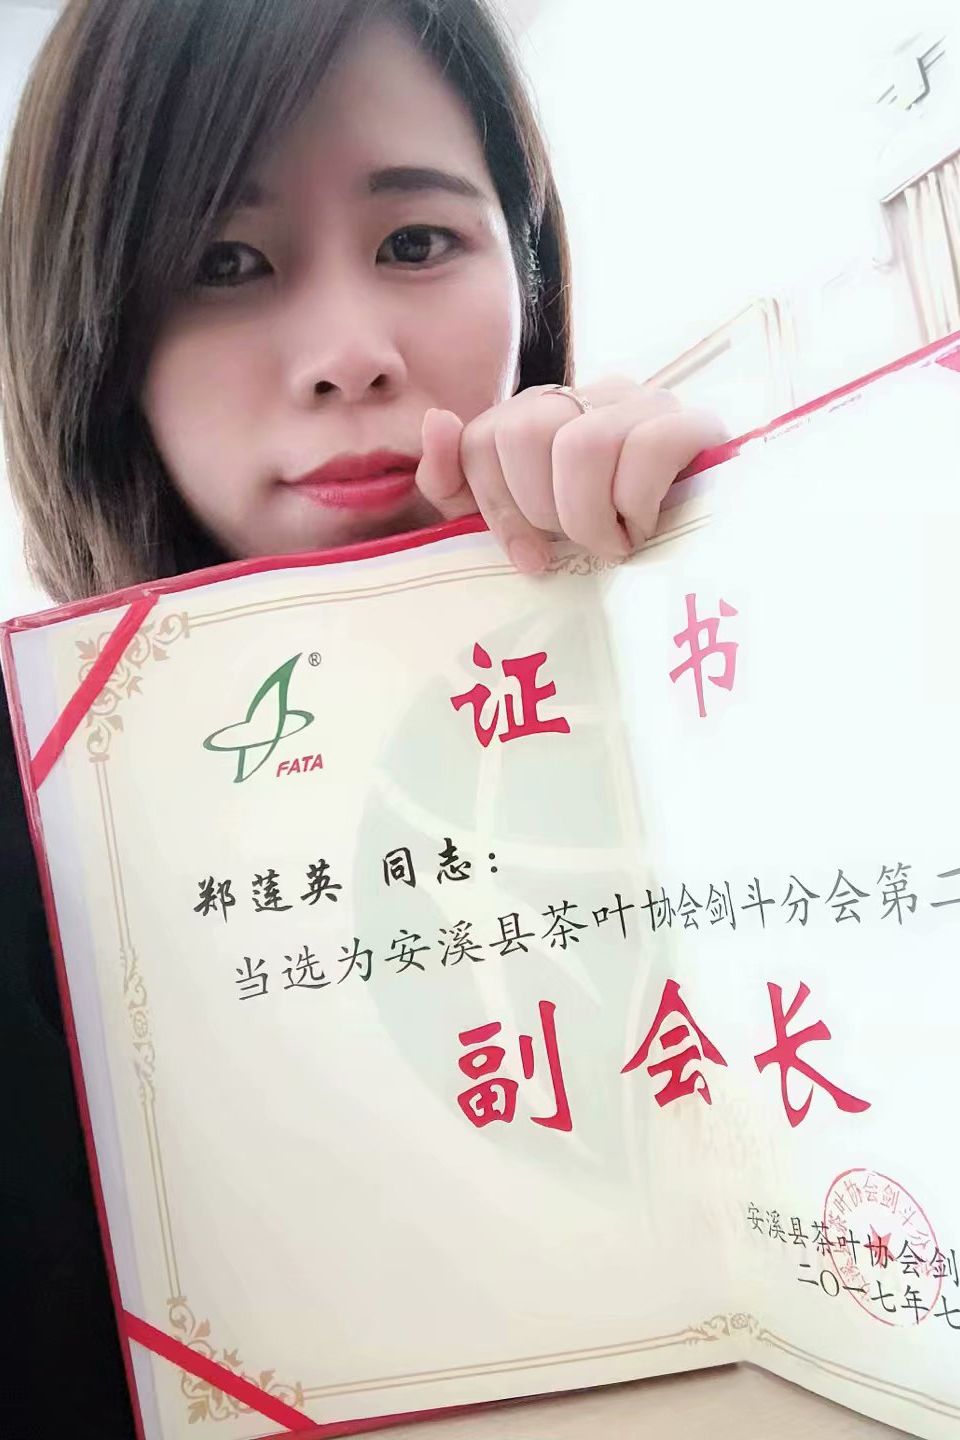 证 书
®
FATA
郑莲英 同志：
当选为安溪县茶叶协会剑斗分会第二
副会长
安溪县茶叶协会剑
二〇一七年七
茶叶协会剑斗分